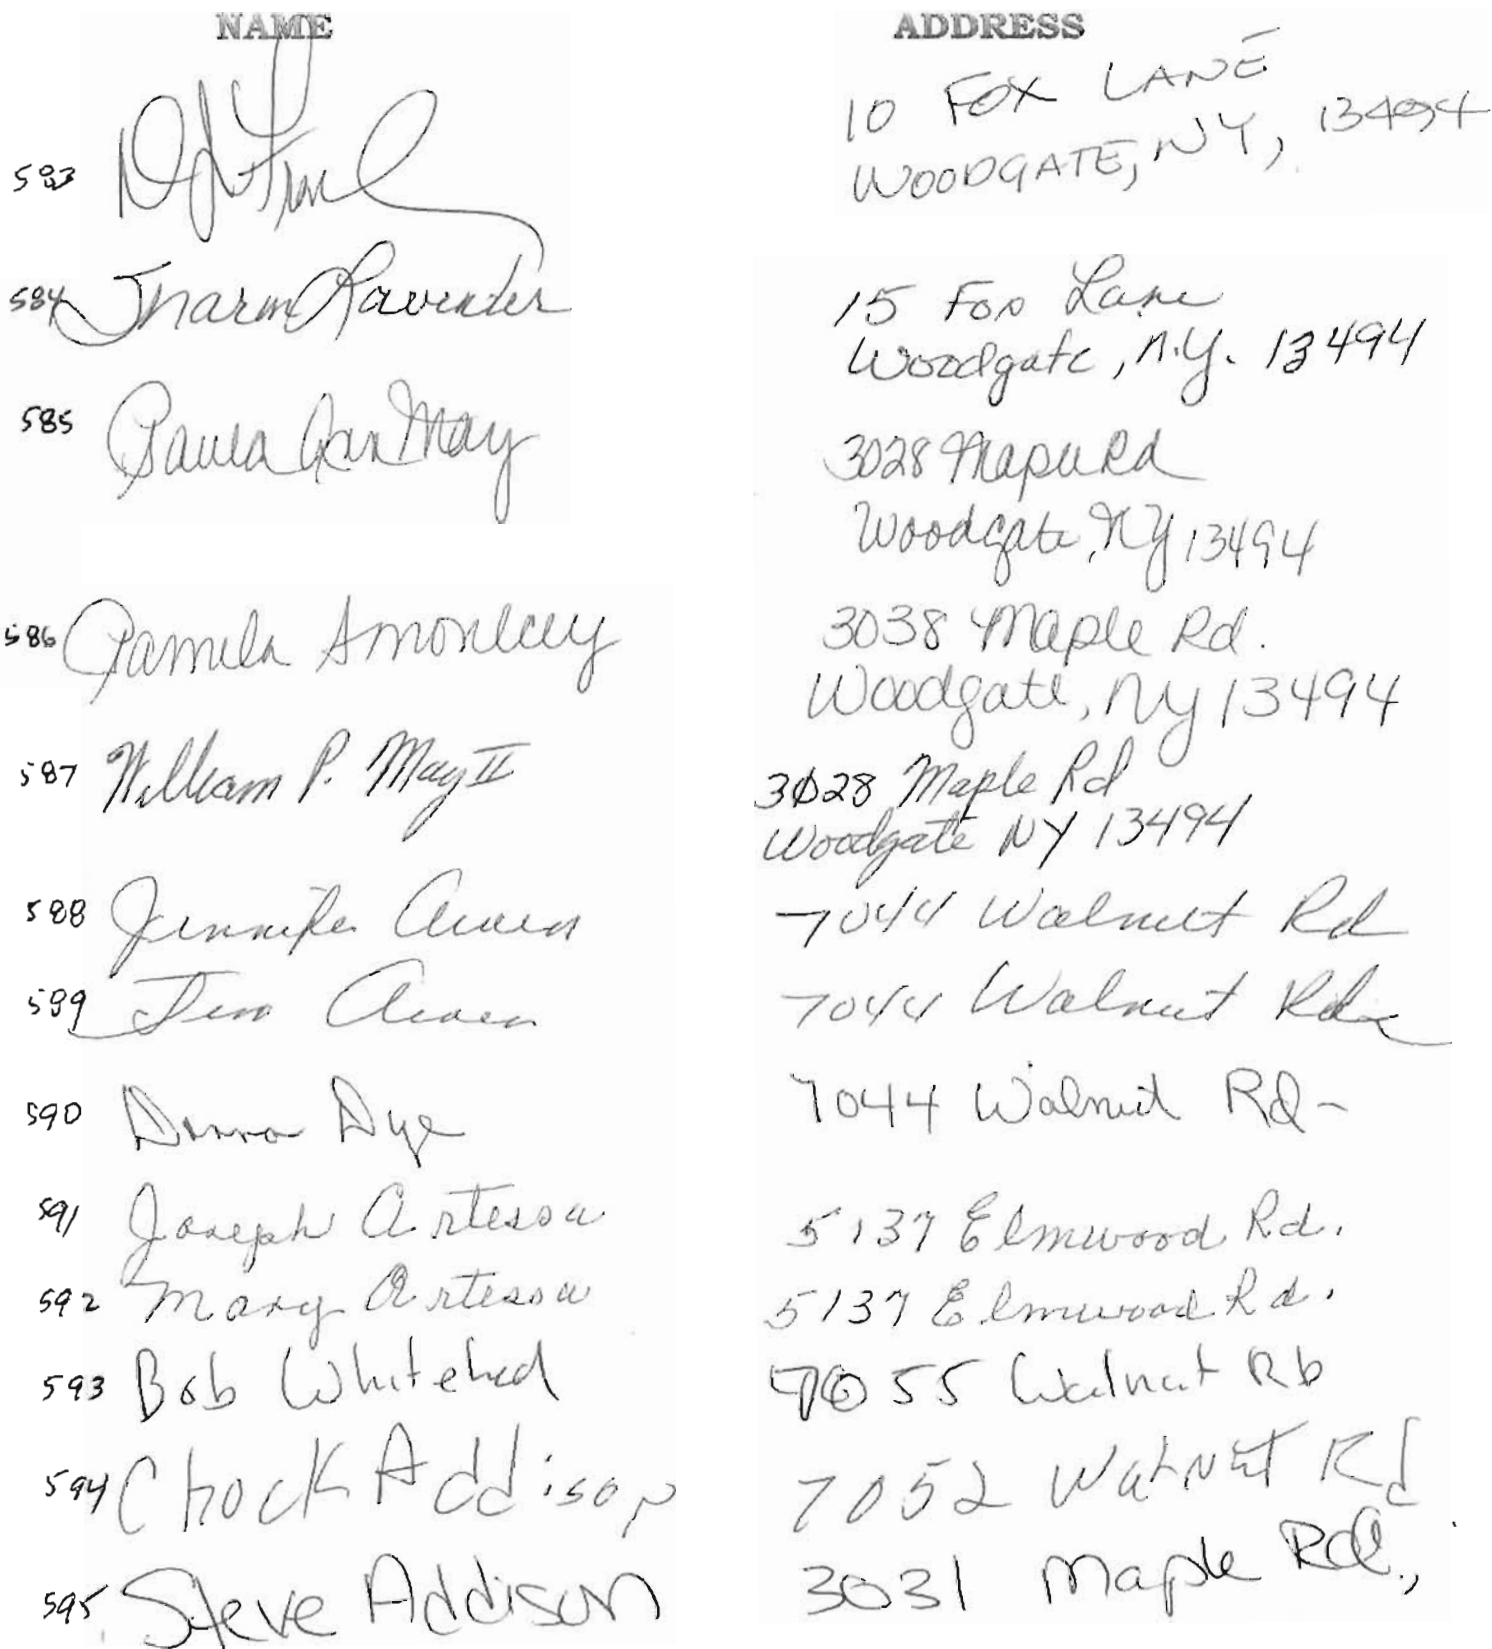 NAME ADDRESS
10 FOX LANE
583 WOODGATE, NY, 13494
584 Lavender 15 Fox Lane
Woodgate, N.Y. 13494
585 Paula Ann May 3028 Maple Rd
Woodgate, NY 13494
586 Pamela 3038 Maple Rd.
Woodgate, Ny 13494
587 William P. May II 3028 Maple Rd
Woodgate NY 13494
588 Jennifer 7044 Walnut Rd
589 7044 Walnut Rd
590 Donna Dye 7044 Walnut Rd-
591 Joseph Artessa 5137 Elmwood Rd.
592 Mary Artessa 5137 Elmwood Rd.
593 Bob Whitehed 7055 Walnut Rd
594 Chock Addison 7052 Walnut Rd
595 Steve Addison 3031 Maple Rd.,